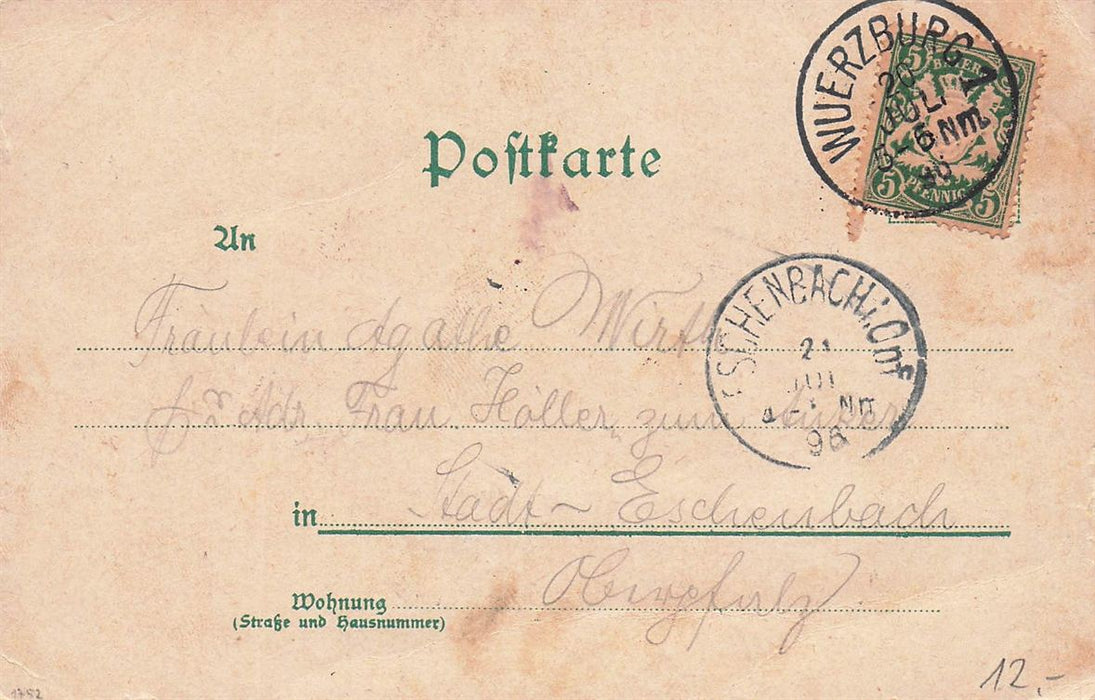 WUERZBURG 1
20
JULI
5-6 Nm
5 BAYERN
PFENNIG
5 5
Postkarte
An
ESCHENBACH i. Opf
21
JUL
Nm
98
Fräulein Agathe Wirth
Adr. Frau Höller „zum Anker"
in Stadt-Eschenbach
Oberpfalz.
Wohnung
(Straße und Hausnummer)
12.-
1752